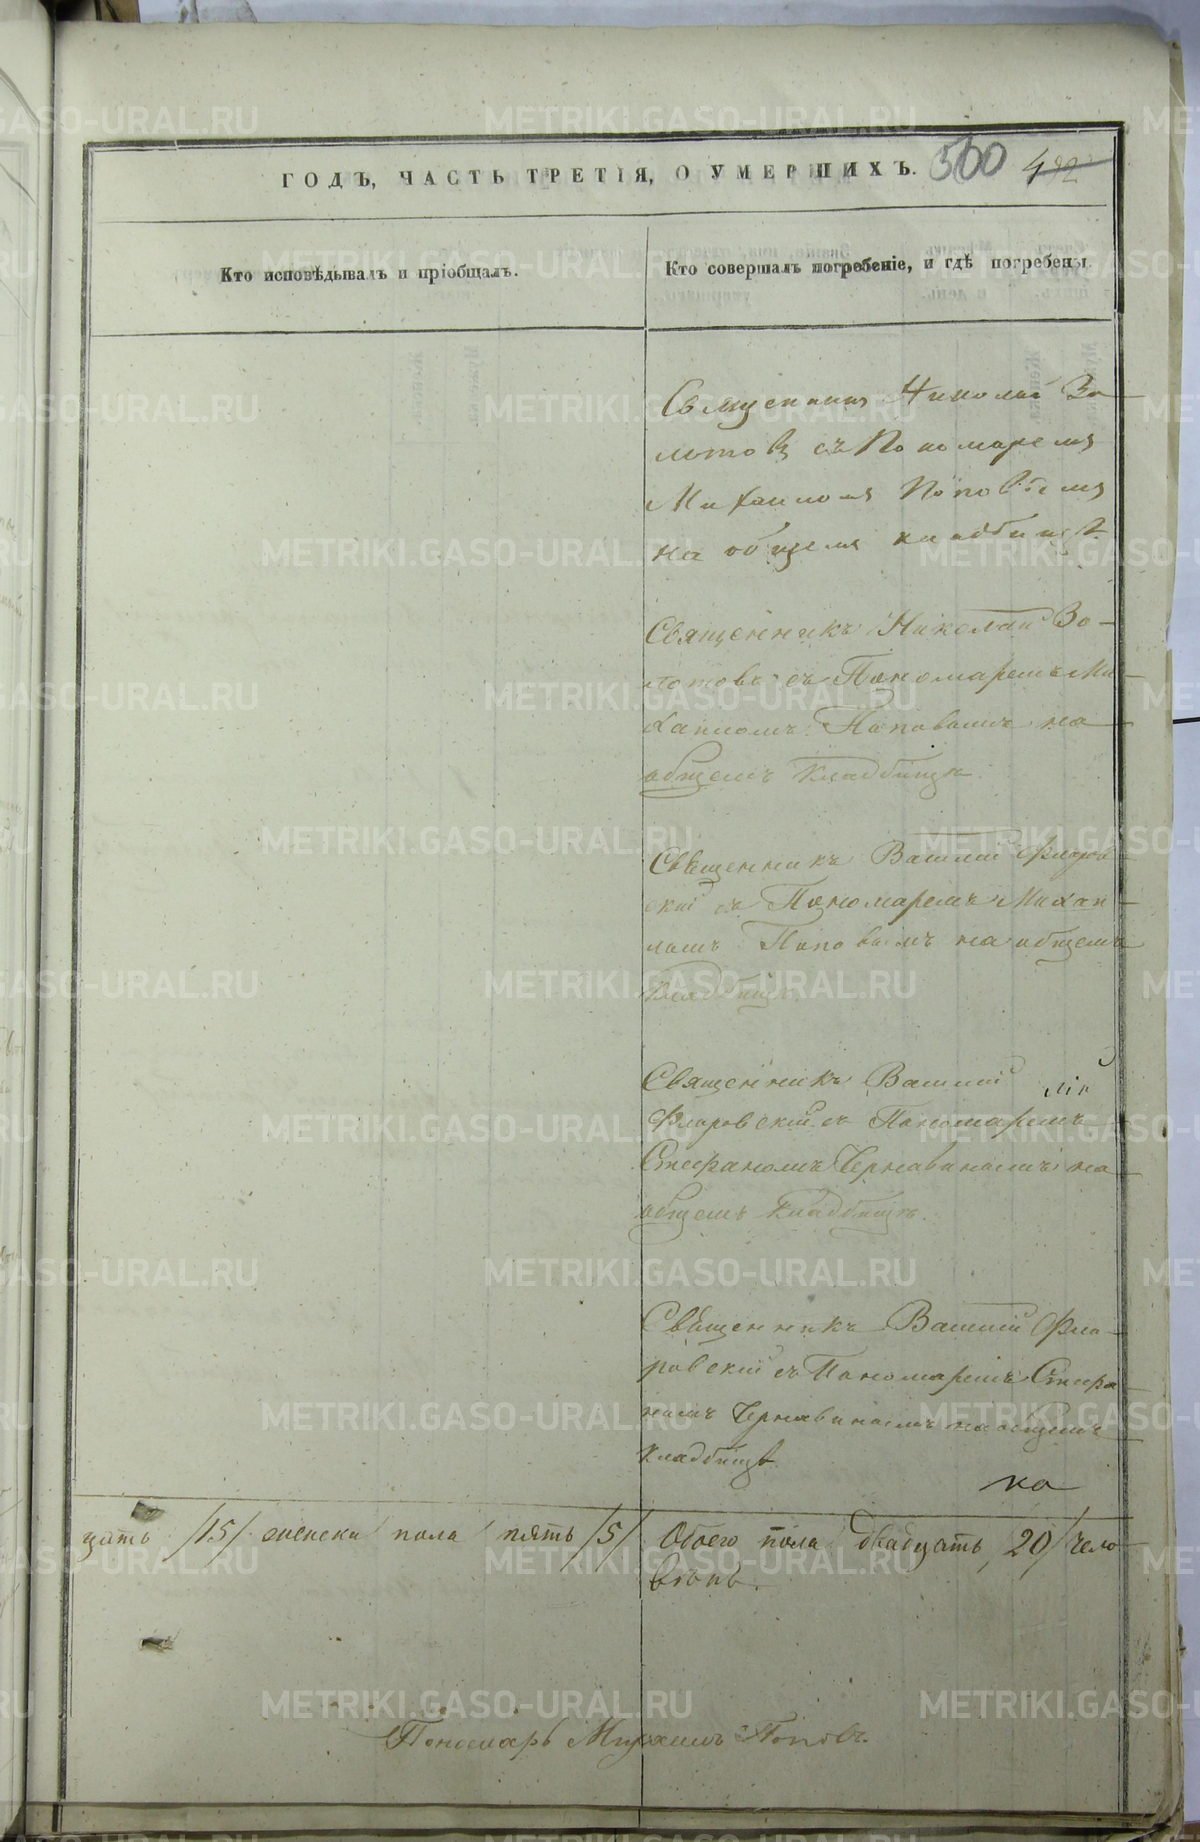 ГОДЪ, ЧАСТЬ ТРЕТІЯ, О УМЕРШИХЪ. 500 492
Кто исповѣдывалъ и пріобщалъ.
Кто совершалъ погребеніе, и гдѣ погребены.
Священникъ Николай Зо-
лотовъ съ Пономаремъ
Михаиломъ Поповымъ
на общемъ кладбищѣ
Священникъ Николай Зо-
лотовъ съ Пономаремъ Ми-
хаиломъ Поповымъ на
общемъ кладбищѣ
Священникъ Василій Флоров-
скій съ Пономаремъ Михаи-
ломъ Поповымъ на общемъ
кладбищѣ
Священникъ Василій
Флоровскій съ Пономаремъ
Стефаномъ Чернавинымъ на
общемъ кладбищѣ.
Священникъ Василій Фло-
ровскій съ Пономаремъ Стефа-
номъ Чернавинымъ на общемъ
кладбищѣ
ка
цать /15/ женска пола пять /5/ Обоего пола двадцать, 20/ чело-
вѣкъ.
Пономарь Михаилъ Поповъ.